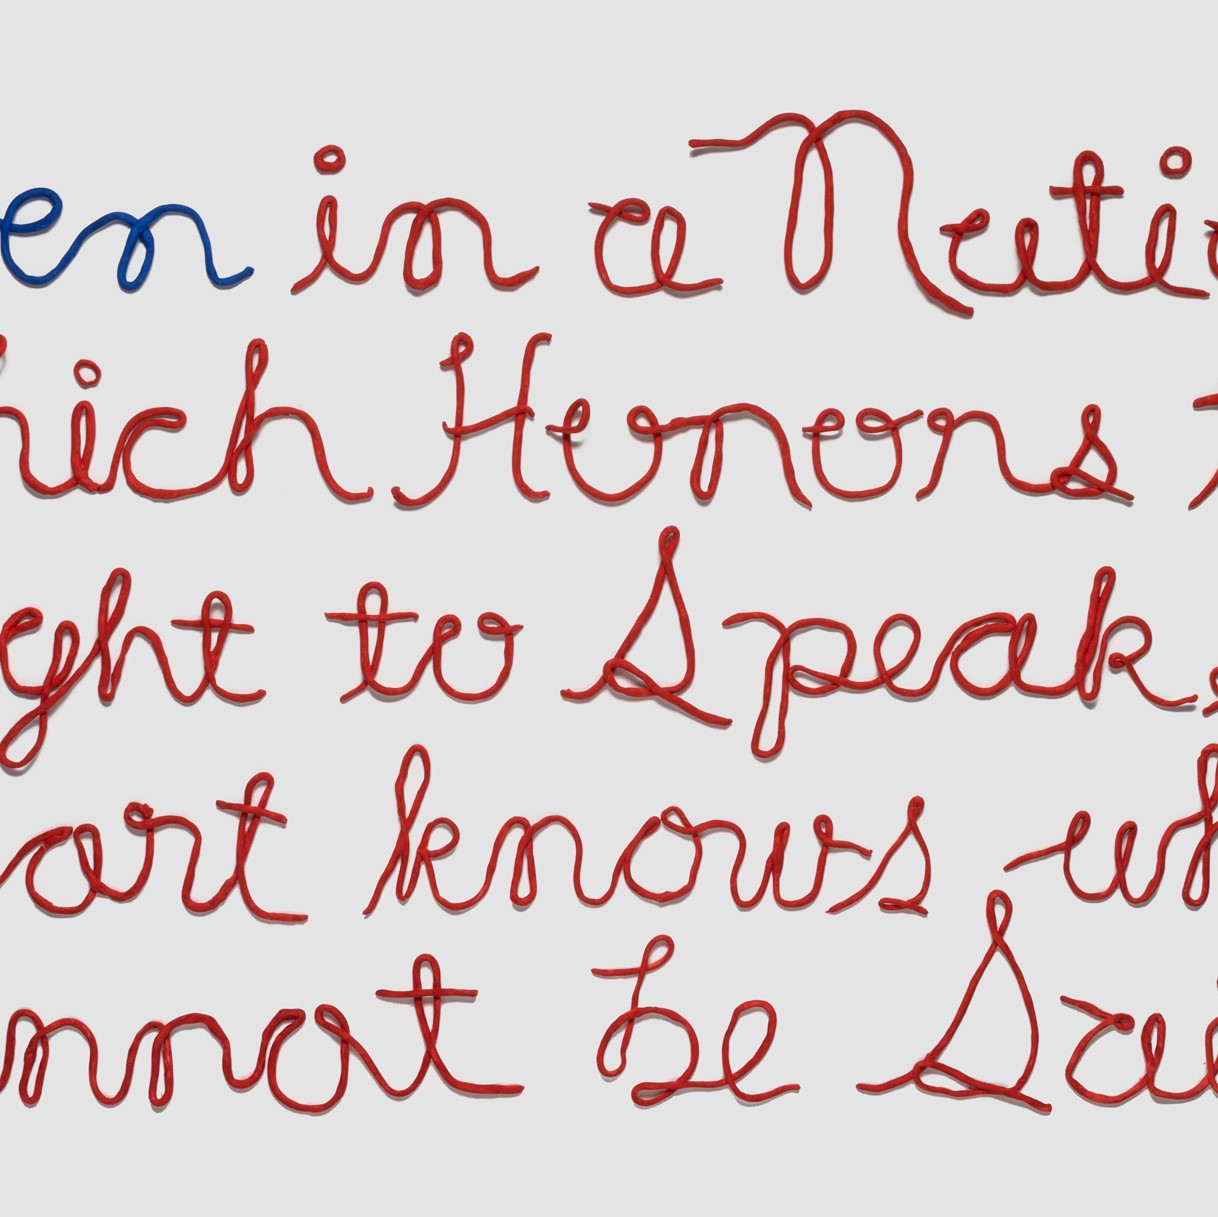 en in a Natio
hich Honors t
ght to Speak,
art knows wh
nnot be Sai